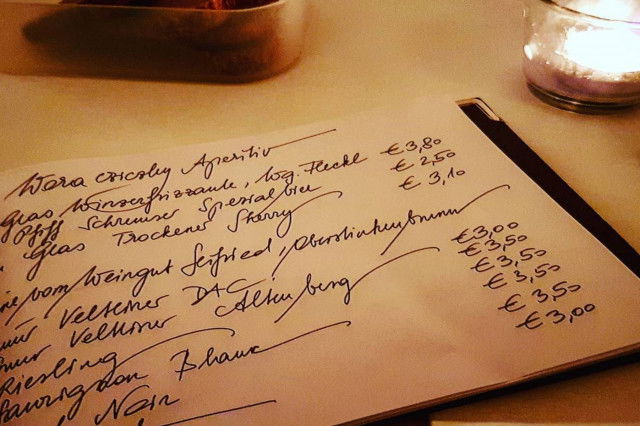 Aperitiv
Glas Winzerfrizzante, Wg. Heckl € 3,80
Pfiff Schremser Spezialbier € 2,50
Glas Trockener Sherry € 3,10
vom Weingut Seifried, Oberstinkenbrunn
Veltliner DAC € 3,00
Veltliner Altenberg € 3,50
Riesling € 3,50
Sauvignon Blanc € 3,50
Noir € 3,00